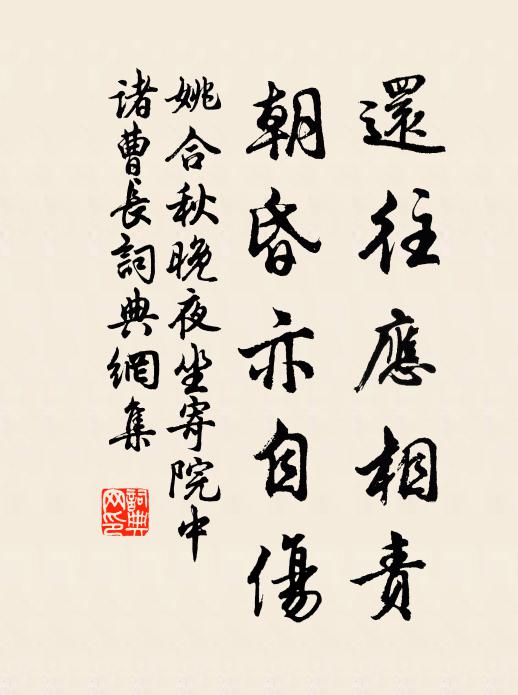 還往應相責
朝昏亦自傷
姚合秋晚夜坐寄院中
諸曹長詞典網集
詞典网印